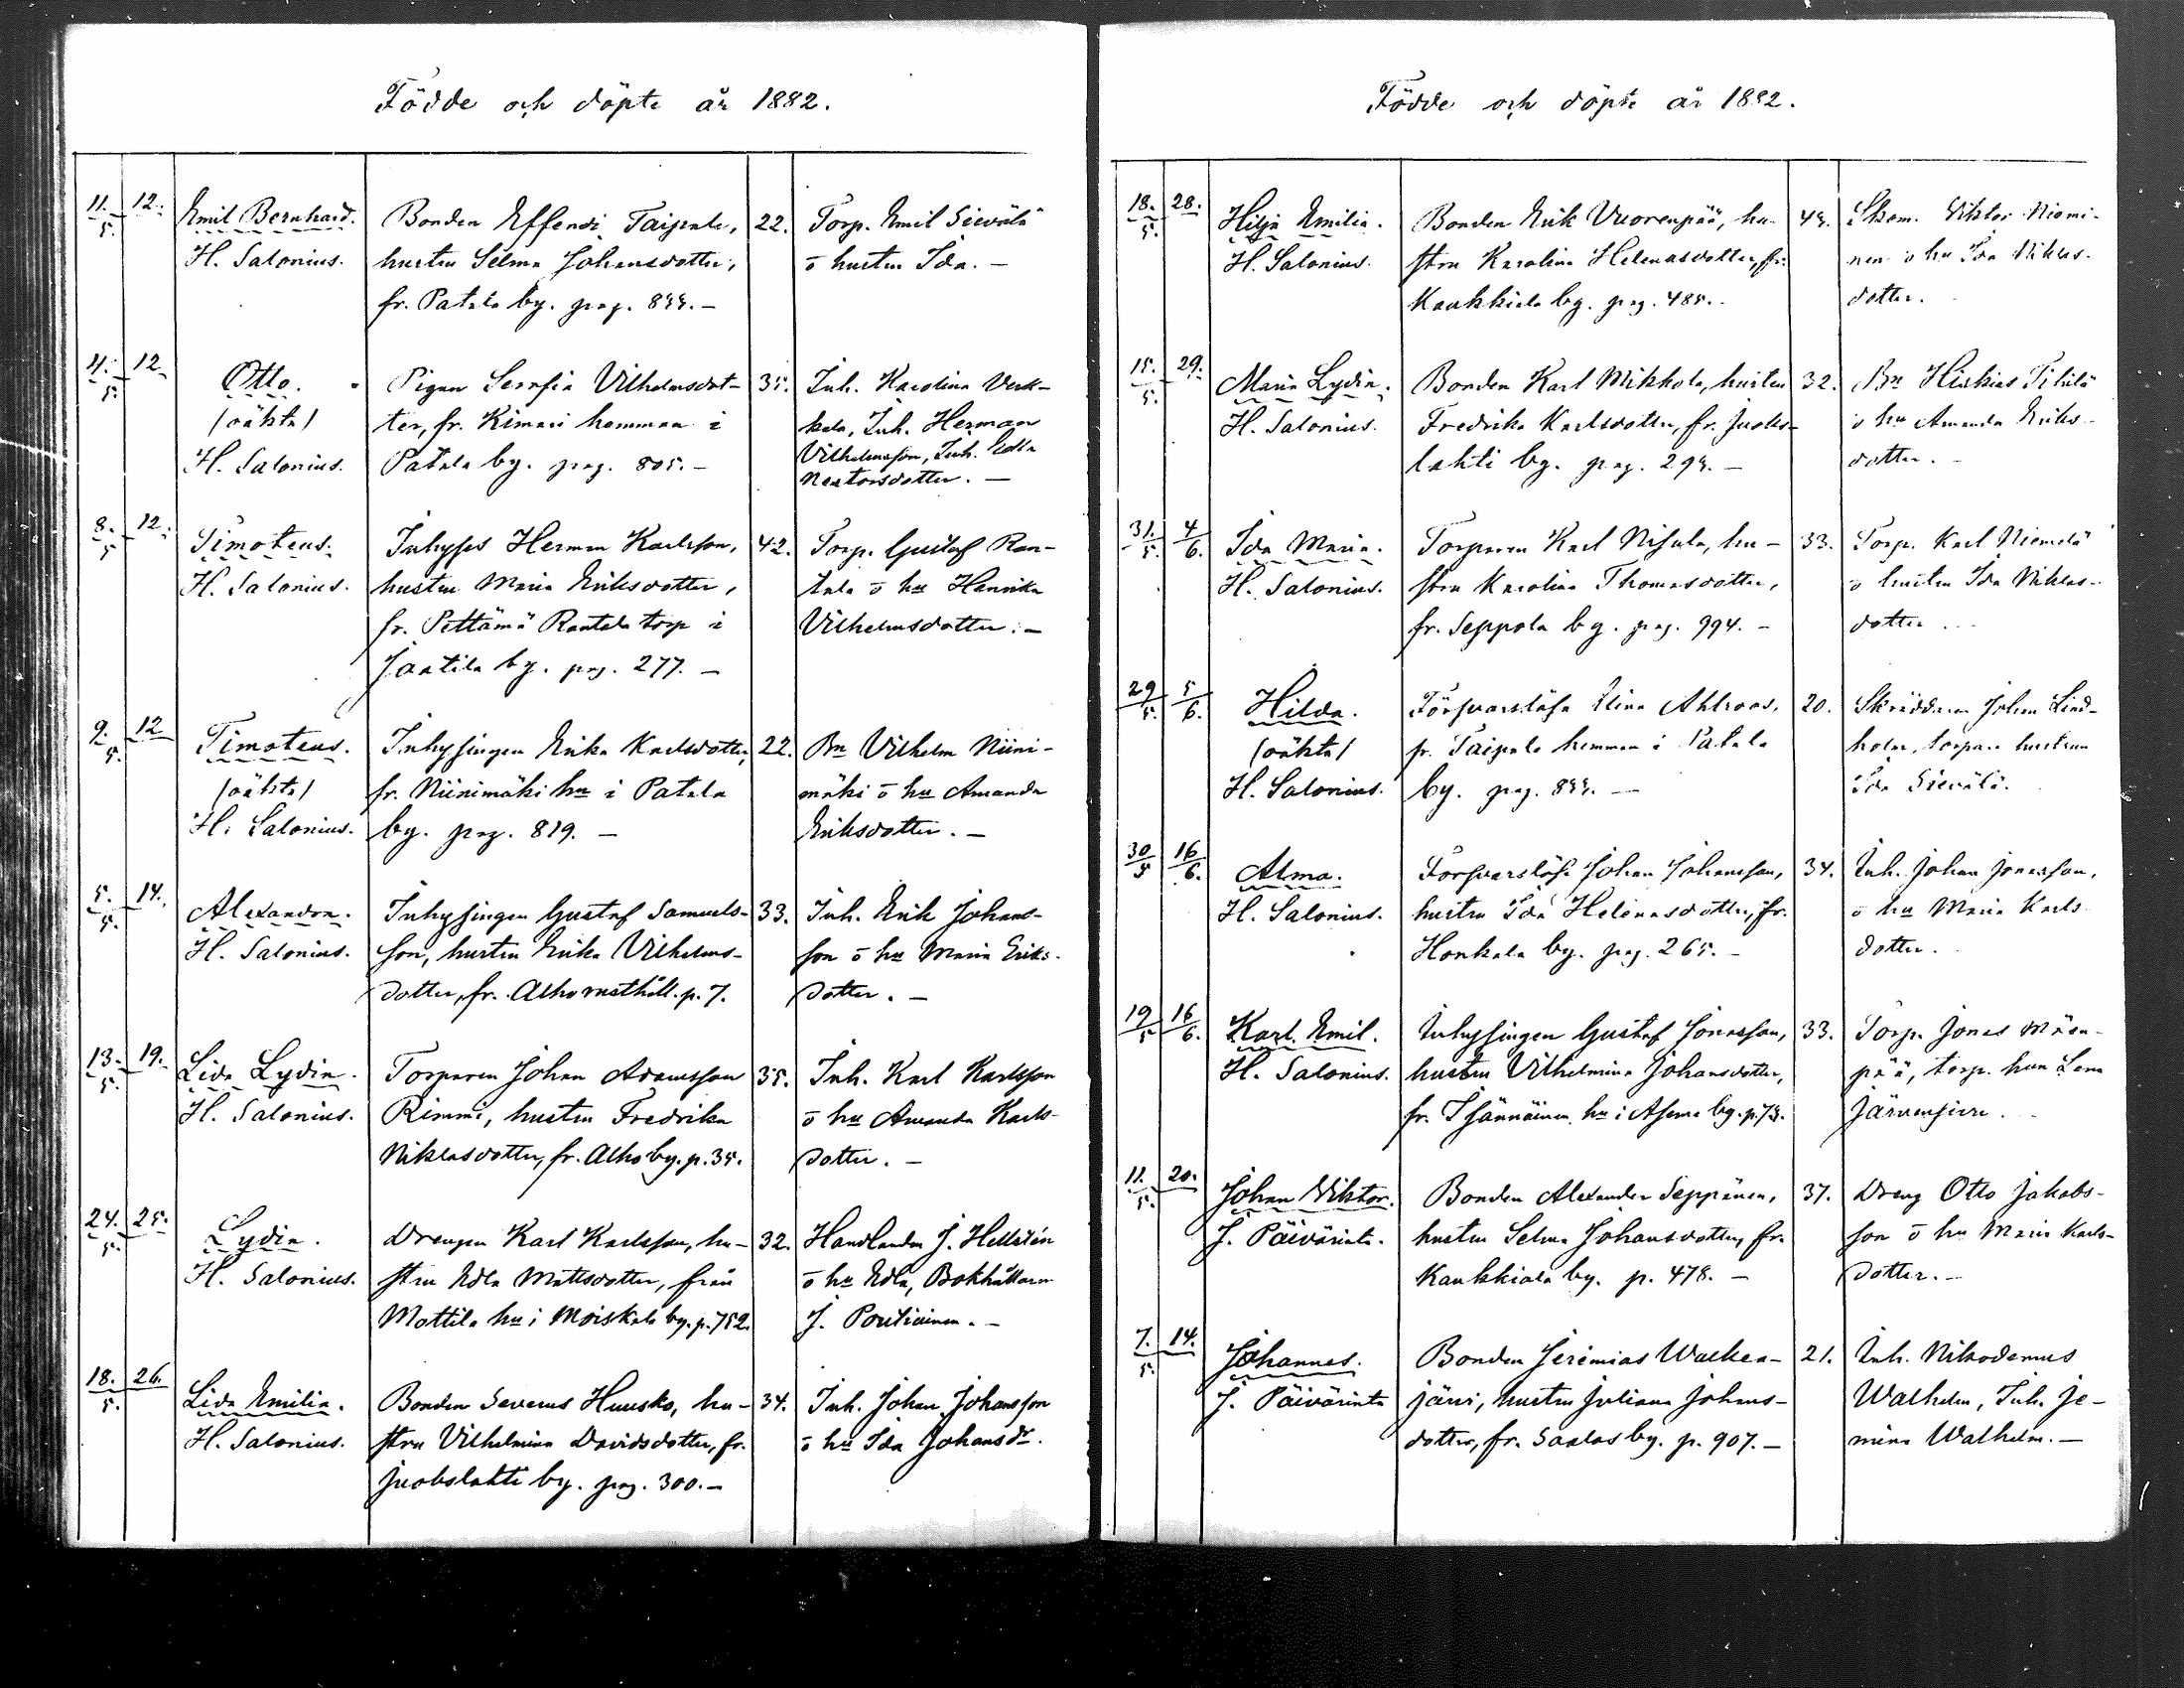 Födde och döpte år 1882.
11. 12. Emil Bernhard. Bonden Effendi Taipale, 22. Torp. Emil Sievälä
5. H. Salonius. hustru Selma Johansdotter, o hustru Ida. —
fr. Patala by. pag. 844. —
11. 12. Otto. Pigan Serafia Vilhelmsdot- 35. Inh. Karolina Verk-
5. (oäkta) ter, fr. Kimari hemman i kala, Inh. Herman
H. Salonius. Patala by. pag. 805. — Vilhelmsson, Inh. Edla
Nestorsdotter. —
8. 12. Timoteus. Inhyses Herman Karlsson, 42. Torp. Gustaf Ran-
5 H. Salonius. hustru Maria Eriksdotter, tala o hu Henrika
fr. Pettämä Rantala torp i Vilhelmsdotter. —
Jaatila by. pag. 277. —
9. 12 Timoteus. Inhysingen Erika Karlsdotter, 22. Bn Vilhelm Niini-
5. (oäkta) fr. Niinimäki hn i Patala mäki o hu Amanda
H. Salonius. by. pag. 819. — Eriksdotter. —
5. 14. Alexandra. Inhysingen Gustaf Samuels- 33. Inh. Erik Johans-
5. H. Salonius. son, hustru Erika Vilhelms- son o hu Maria Eriks-
dotter, fr. Alho rusthåll. p. 7. dotter. —
13. 19. Lida Lydia. Torparen Johan Adamsson 35. Inh. Karl Karlsson
5. H. Salonius. Rimmi, hustru Fredrika o hu Amanda Karls-
Niklasdotter, fr. Alho by. p. 35. dotter. —
24. 25. Lydia. Drengen Karl Karlsson, hu- 32. Handlanden J. Hellstén
5. H. Salonius. stru Edla Mattsdotter, från o hu Edla, Bokhållaren
Mattila hn i Moiskala by. p. 752. J. Poutiainen. —
18. 26. Lida Emilia. Bonden Severus Huusko, hu- 34. Inh. Johan Johansson
5. H. Salonius. stru Vilhelmina Davidsdotter, fr. o hu Ida Johansdr.
Juokslahti by. pag. 300. —
Födde och döpte år 1882.
18. 28. Hilja Emilia. Bonden Erik Vuorenpää, hu- 44. Skom. Viktor Niemi-
5. H. Salonius. stru Karolina Helenasdotter, fr. nen o hu Ida Niklas-
Kaukkiala by. pag. 485. dotter.
15. 29. Maria Lydia. Bonden Karl Mikkola, hustru 32. Bn Hiskias Tihilä
5. H. Salonius. Fredrika Karlsdotter, fr. Juoks- o hu Amanda Eriks-
lahti by. pag. 294. — dotter. —
31. 4 Ida Maria. Torparen Karl Nisula, hu- 33. Torp. Karl Niemelä
5. 6. H. Salonius. stru Karolina Thomasdotter, o hustru Ida Niklas-
fr. Seppola by. pag. 994. — dotter
29 5 Hilda. Försvarslösa Elina Ahlroos, 20. Skräddaren Johan Lind-
5. 6. (oäkta) fr. Taipale hemman i Patala holm, torpare hustrun
H. Salonius. by. pag. 844. — Ida Sievälä.
30 16 Alma. Försvarslöse Johan Johansson, 34. Inh. Johan Jonasson,
5 6. H. Salonius. hustru Ida Helenasdotter, fr. o hu Maria Karls-
Honkala by. pag. 265. — dotter.
19 16 Karl Emil. Inhysingen Gustaf Jonasson, 33. Torp. Jonas Mäen-
5 6. H. Salonius. hustru Vilhelmina Johansdotter, pää, torp. hun Lena
fr. hn i by. p. 73. Järvensivu.
11. 20. Johan Viktor. Bonden Alexander Seppänen, 37. Dreng Otto Jakobs-
5. J. Päivärinta. hustru Selma Johansdotter, fr. son o hu Maria Karls-
Kaukkiala by. p. 478. — dotter. —
7. 14. Johannes. Bonden Jeremias Walkea- 21. Inh. Nikodemus
5. J. Päivärinta järvi, hustru Juliana Johans- Walhelm, Inh. Je-
dotter, fr. Saalas by. p. 907. — mina Walhelm. —